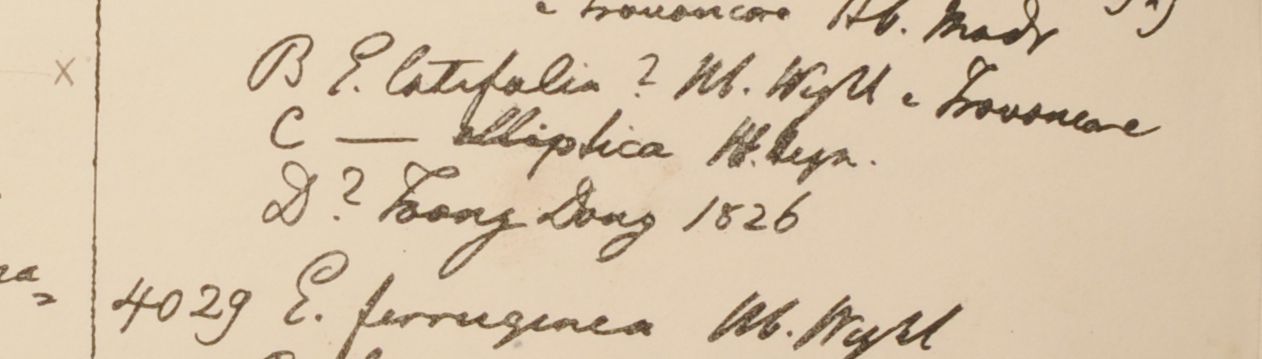 e Travancore Hb. Madr
B E. latifolia? Hb. Wight e Travancore
C — elliptica H. Heyn.
D? Taong Dong 1826
4029 E. ferruginea Hb. Wight